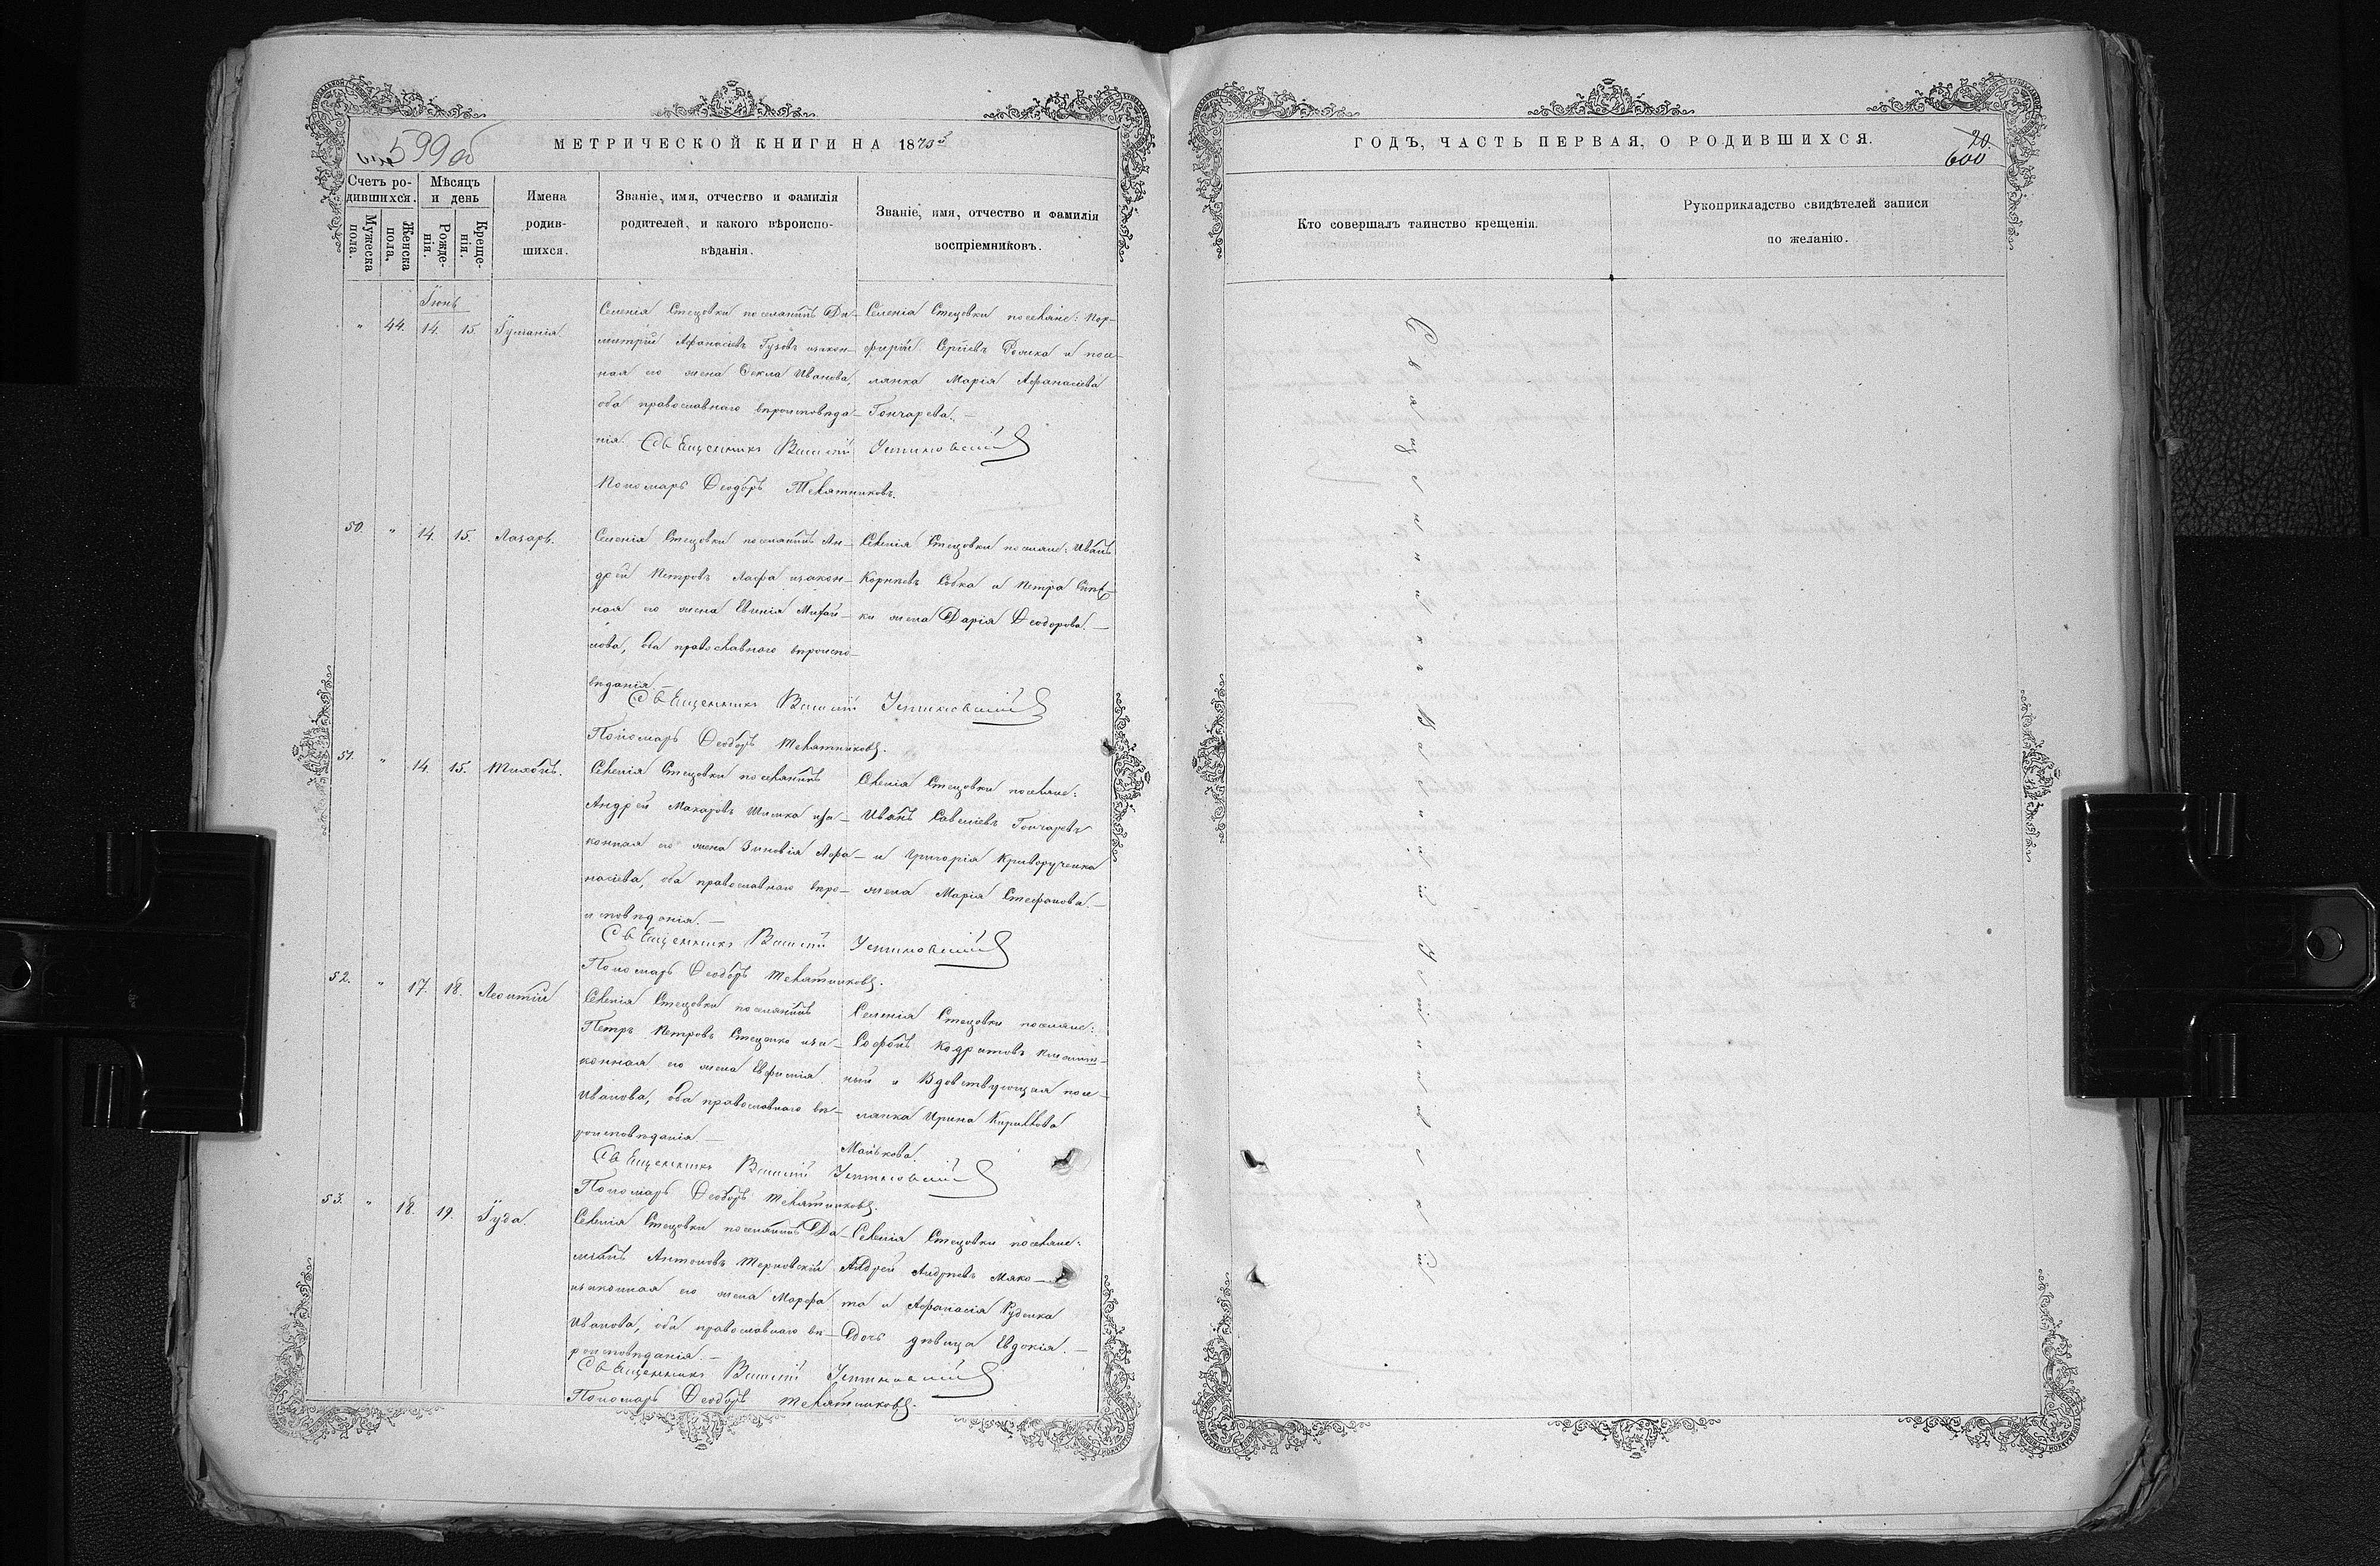 599 об
МЕТРИЧЕСКОЙ КНИГИ НА 1875й
Счетъ ро-
дившихся.
Мѣсяцъ
и день
Мужеска
пола.
Женска
пола,
Рожде-
нія.
Креще-
нія.
Имена
родив-
шихся.
Званіе, имя, отчество и фамилія
родителей, и какого вѣроиспо-
вѣданія.
Званіе, имя, отчество и фамилія
воспріемниковъ.
Іюнь
" 44. 14. 15. Іуліанія
Селенія Стецовки поселянинъ Ди-
митрій Афанасіевъ Гузовъ изакон-
ная его жена Ѳекла Иванова,
оба православнаго вѣроисповѣда-
нія.
Селенія Стецовки поселяне: Пор-
фирій Сергіевъ и посе-
лянка Марія Афанасіева
Гончарева.
Священникъ Василій Устиновскій
Пономарь Ѳеодоръ Телятниковъ.
50. " 14. 15. Лазарь.
Селенія Стецовки поселянинъ Ан-
дрей Петровъ Лафа изакон-
ная его жена Евгенія Михай-
лова, оба православнаго вѣроиспо-
вѣданія
Селенія Стецовки поселяне: Иванъ
Корнѣевъ Собка и Петра
ки жена Дарія Ѳеодорова.
Священникъ Василій Устиновскій
Пономарь Ѳеодоръ Телятниковъ.
51. " 14. 15. Тихонъ.
Селенія Стецовки поселянинъ
Андрей Макаровъ Шишка иза-
конная его жена Зиновія Афа-
насіева, оба православнаго вѣро-
исповѣданія.
Селенія Стецовки поселяне:
Иванъ Савеліевъ Гончаревъ
и Григорія Криворученка
жена Марія Стефанова.
Священникъ Василій Устиновскій
Пономарь Ѳеодоръ Телятниковъ.
52. " 17. 18. Леонтій
Селенія Стецовки поселянинъ
Петръ Петровъ Стеценко иза-
конная его жена Евфимія
Иванова, оба православнаго вѣ-
роисповѣданія
Селенія Стецовки поселяне:
Софонъ Кодратовъ
ный и Вдовствующая посе-
лянка Ирина Кириллова
Манькова.
Священникъ Василій Устиновскій
Пономарь Ѳеодоръ Телятниковъ.
53. " 18. 19. Іуда.
Селенія Стецовки поселянинъ Да-
міанъ Антоновъ Терновскій
изаконная его жена Марфа
Иванова, оба православнаго вѣ-
роисповѣданія.
Селенія Стецовки поселяне:
Андрей Андреевъ Мяко-
та и Афанасія Руденка
дочь дѣвица Евдокія.
Священникъ Василій Устиновскій
Пономарь Ѳеодоръ Телятниковъ.
ГОДЪ, ЧАСТЬ ПЕРВАЯ, О РОДИВШИХСЯ.
20.
600
Кто совершалъ таинство крещенія.
Рукоприкладство свидѣтелей записи
по желанію.
Священникъ Василій Устиновскій